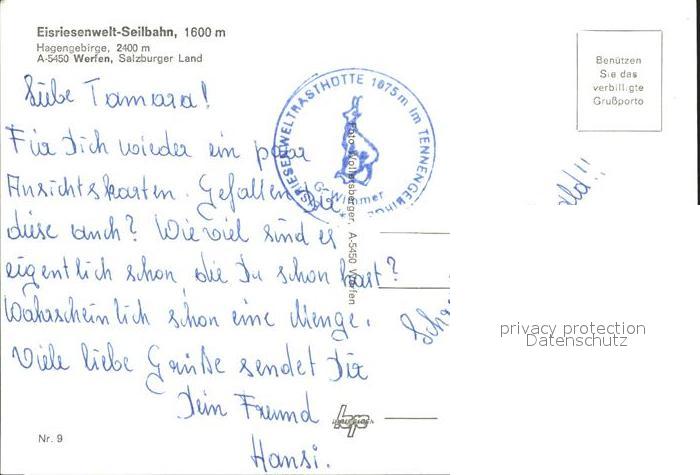 Eisriesenwelt-Seilbahn, 1600 m
Hagengebirge, 2400 m
A-5450 Werfen, Salzburger Land
Benützen
Sie das
verbilligte
Grußporto
EISRIESENWELTRASTHÜTTE 1075m im TENNENGEBIRGE
G. Wimmer
Liebe Tamara!
Für Dich wieder ein paar
Ansichtskarten. Gefallen Dir
diese auch? Wieviel sind es
eigentlich schon, die Du schon hast?
Wahrscheinlich schon eine Menge.
Viele liebe Grüße sendet Dir
Dein Freund
Hansi.
A-5450 Werfen
privacy protection
Datenschutz
Nr. 9